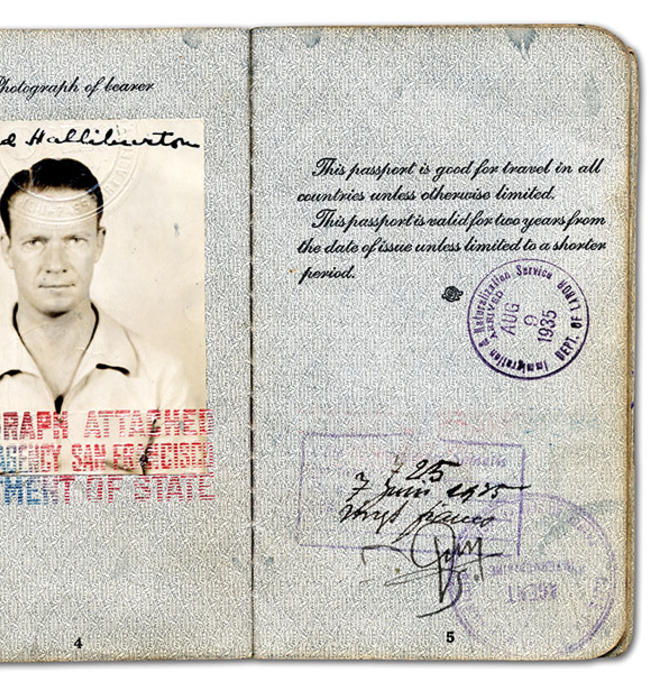 Photograph of bearer
d Halliburton
RAPH ATTACHED
AGENCY SAN FRANCISCO
MENT OF STATE
4
This passport is good for travel in all
countries unless otherwise limited.
This passport is valid for two years from
the date of issue unless limited to a shorter
period.
Immigration & Naturalization Service
ARRIVED
AUG
9
1935
DEPT. OF LABOR
725
7 Juin 1935
AGENT
5